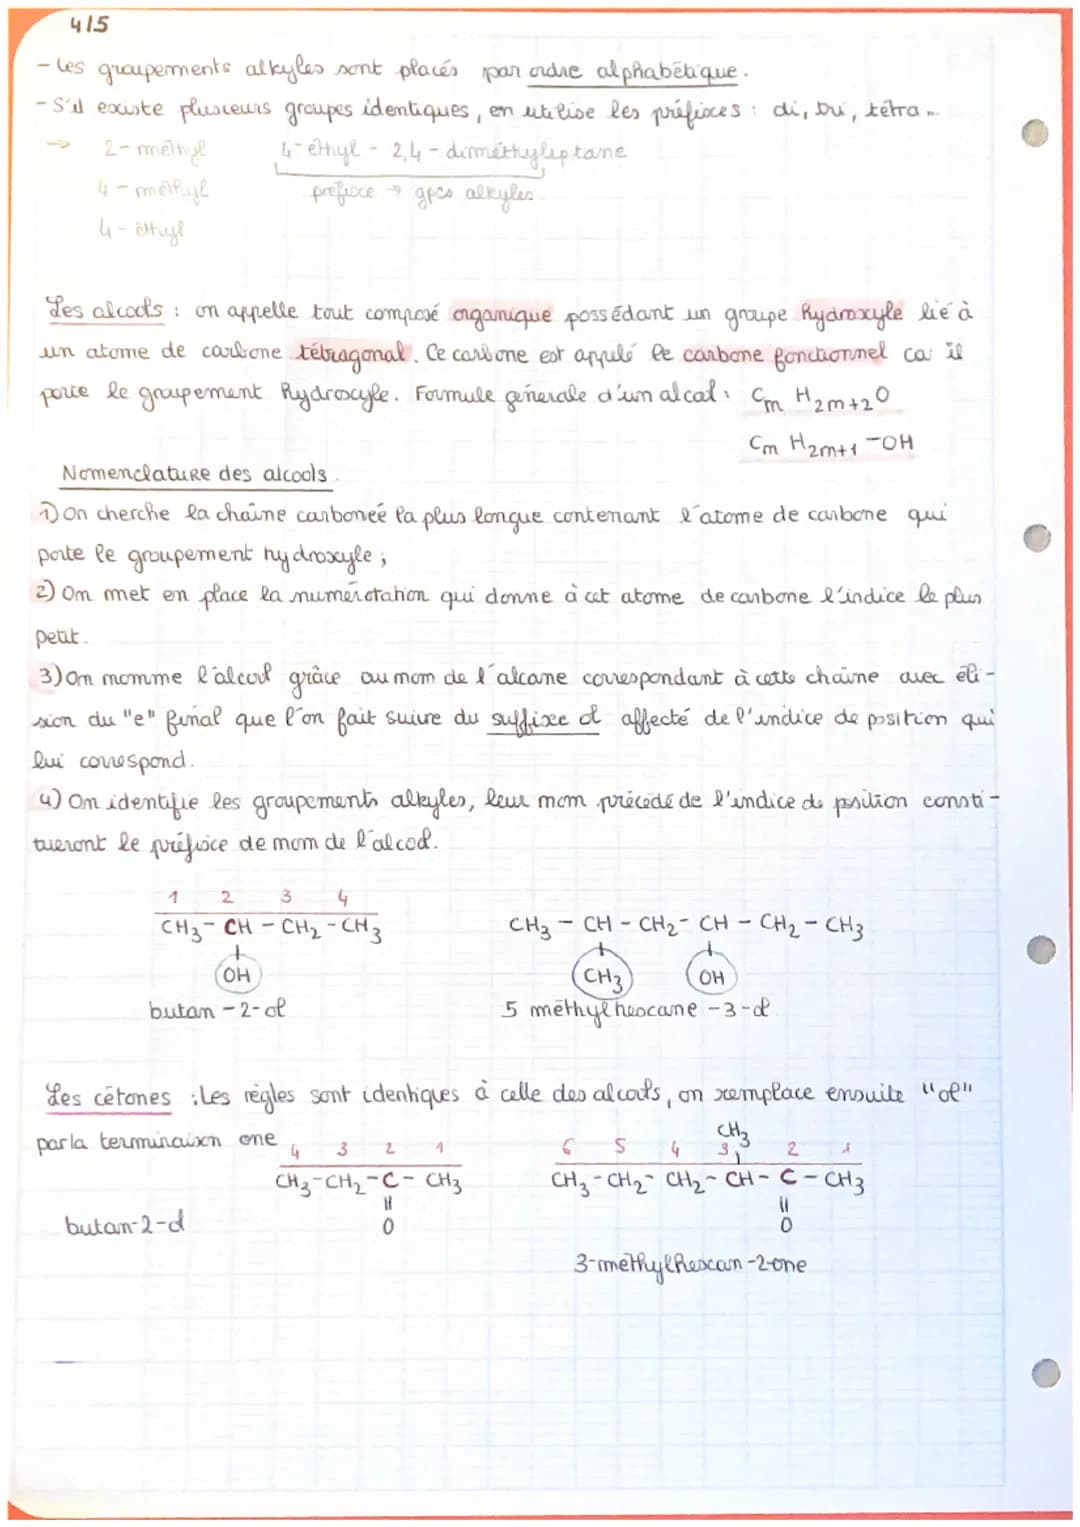 4/5
- Les groupements alkyles sont placés par ordre alphabétique.
- S'il existe plusieurs groupes identiques, en utilise les préfixes : di, tri, tétra...
→ 2-méthyl 4-éthyl - 2,4-diméthyleptane
4-méthyl préfixe → gpes alkyles
4-éthyl
Les alcools : on appelle tout composé organique possédant un groupe hydroxyle lié à
un atome de carbone tétragonal. Ce carbone est appelé le carbone fonctionnel car il
porte le groupement hydroxyle. Formule générale d'un alcol : Cm H2m+2O
Cm H2m+1 -OH
Nomenclature des alcools.
1) On cherche la chaîne carboneé la plus longue contenant l'atome de carbone qui
porte le groupement hydroxyle ;
2) On met en place la numérotation qui donne à cet atome de carbone l'indice le plus
petit.
3) On nomme l'alcool grâce au nom de l'alcane correspondant à cette chaîne avec éli-
sion du "e" final que l'on fait suivre du suffixe ol affecté de l'indice de position qui
lui correspond.
4) On identifie les groupements alkyles, leur nom précédé de l'indice de position consti-
tueront le préfixe de nom de l'alcool.
1 2 3 4
CH3 - CH - CH2 - CH3 CH3 - CH - CH2 - CH - CH2 - CH3
OH CH3 OH
butan-2-ol 5 méthylhexane-3-ol
Les cétones : Les règles sont identiques à celle des alcools, on remplace ensuite "ol"
par la terminaison one
CH3
4 3 2 1 6 5 4 3 2 1
CH3-CH2-C-CH3 CH3-CH2-CH2-CH-C-CH3
|| ||
butan-2-ol O O
3-méthylhexan-2-one